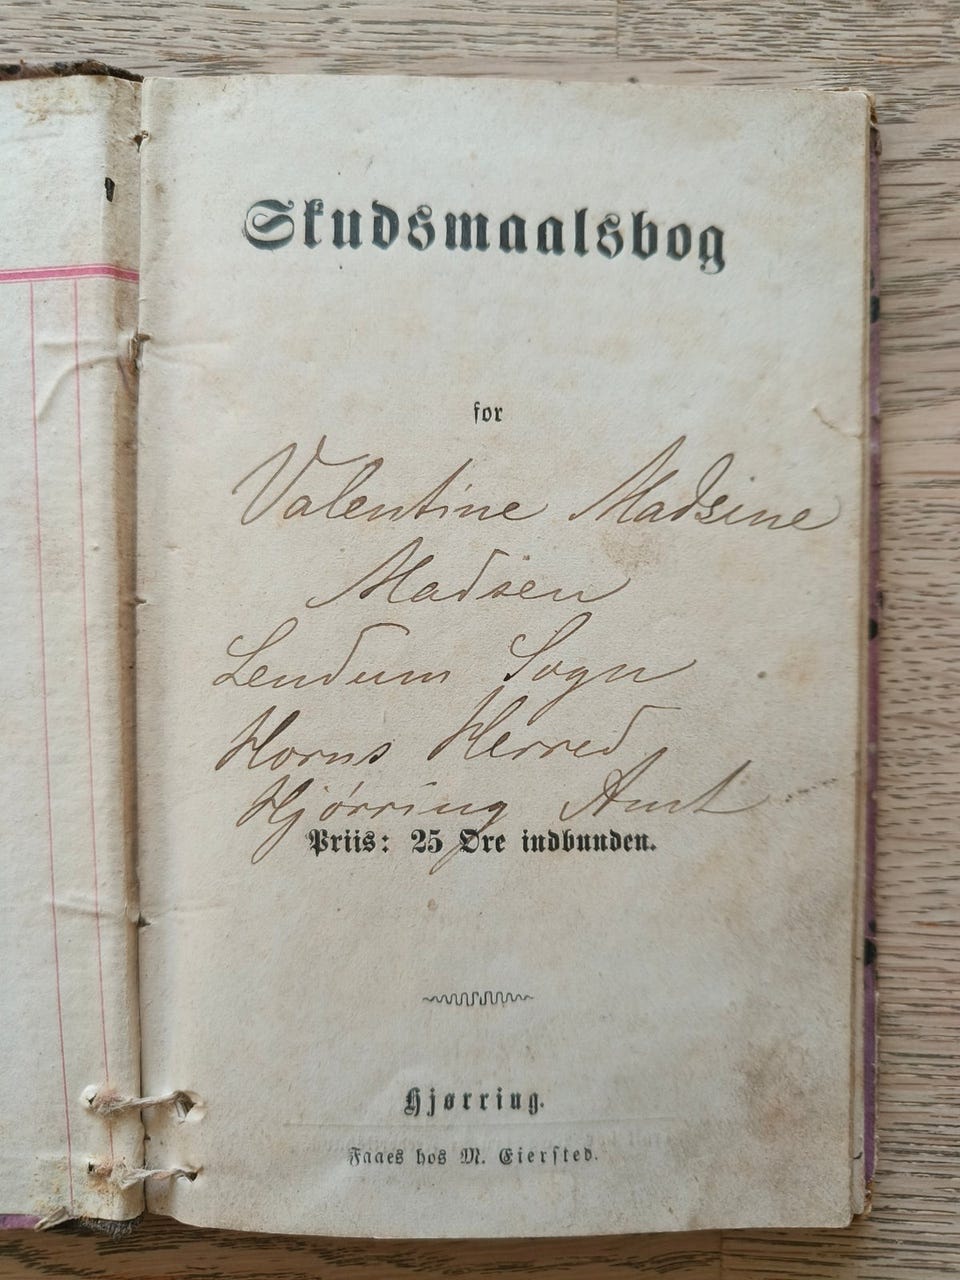 Skudsmaalsbog
for
Valentine Madsine
Madsen
Lendum Sogn
Horns Herred
Hjørring Amt
Priis: 25 Øre indbunden.
Hjørring.
Faaes hos M. Eiersted.